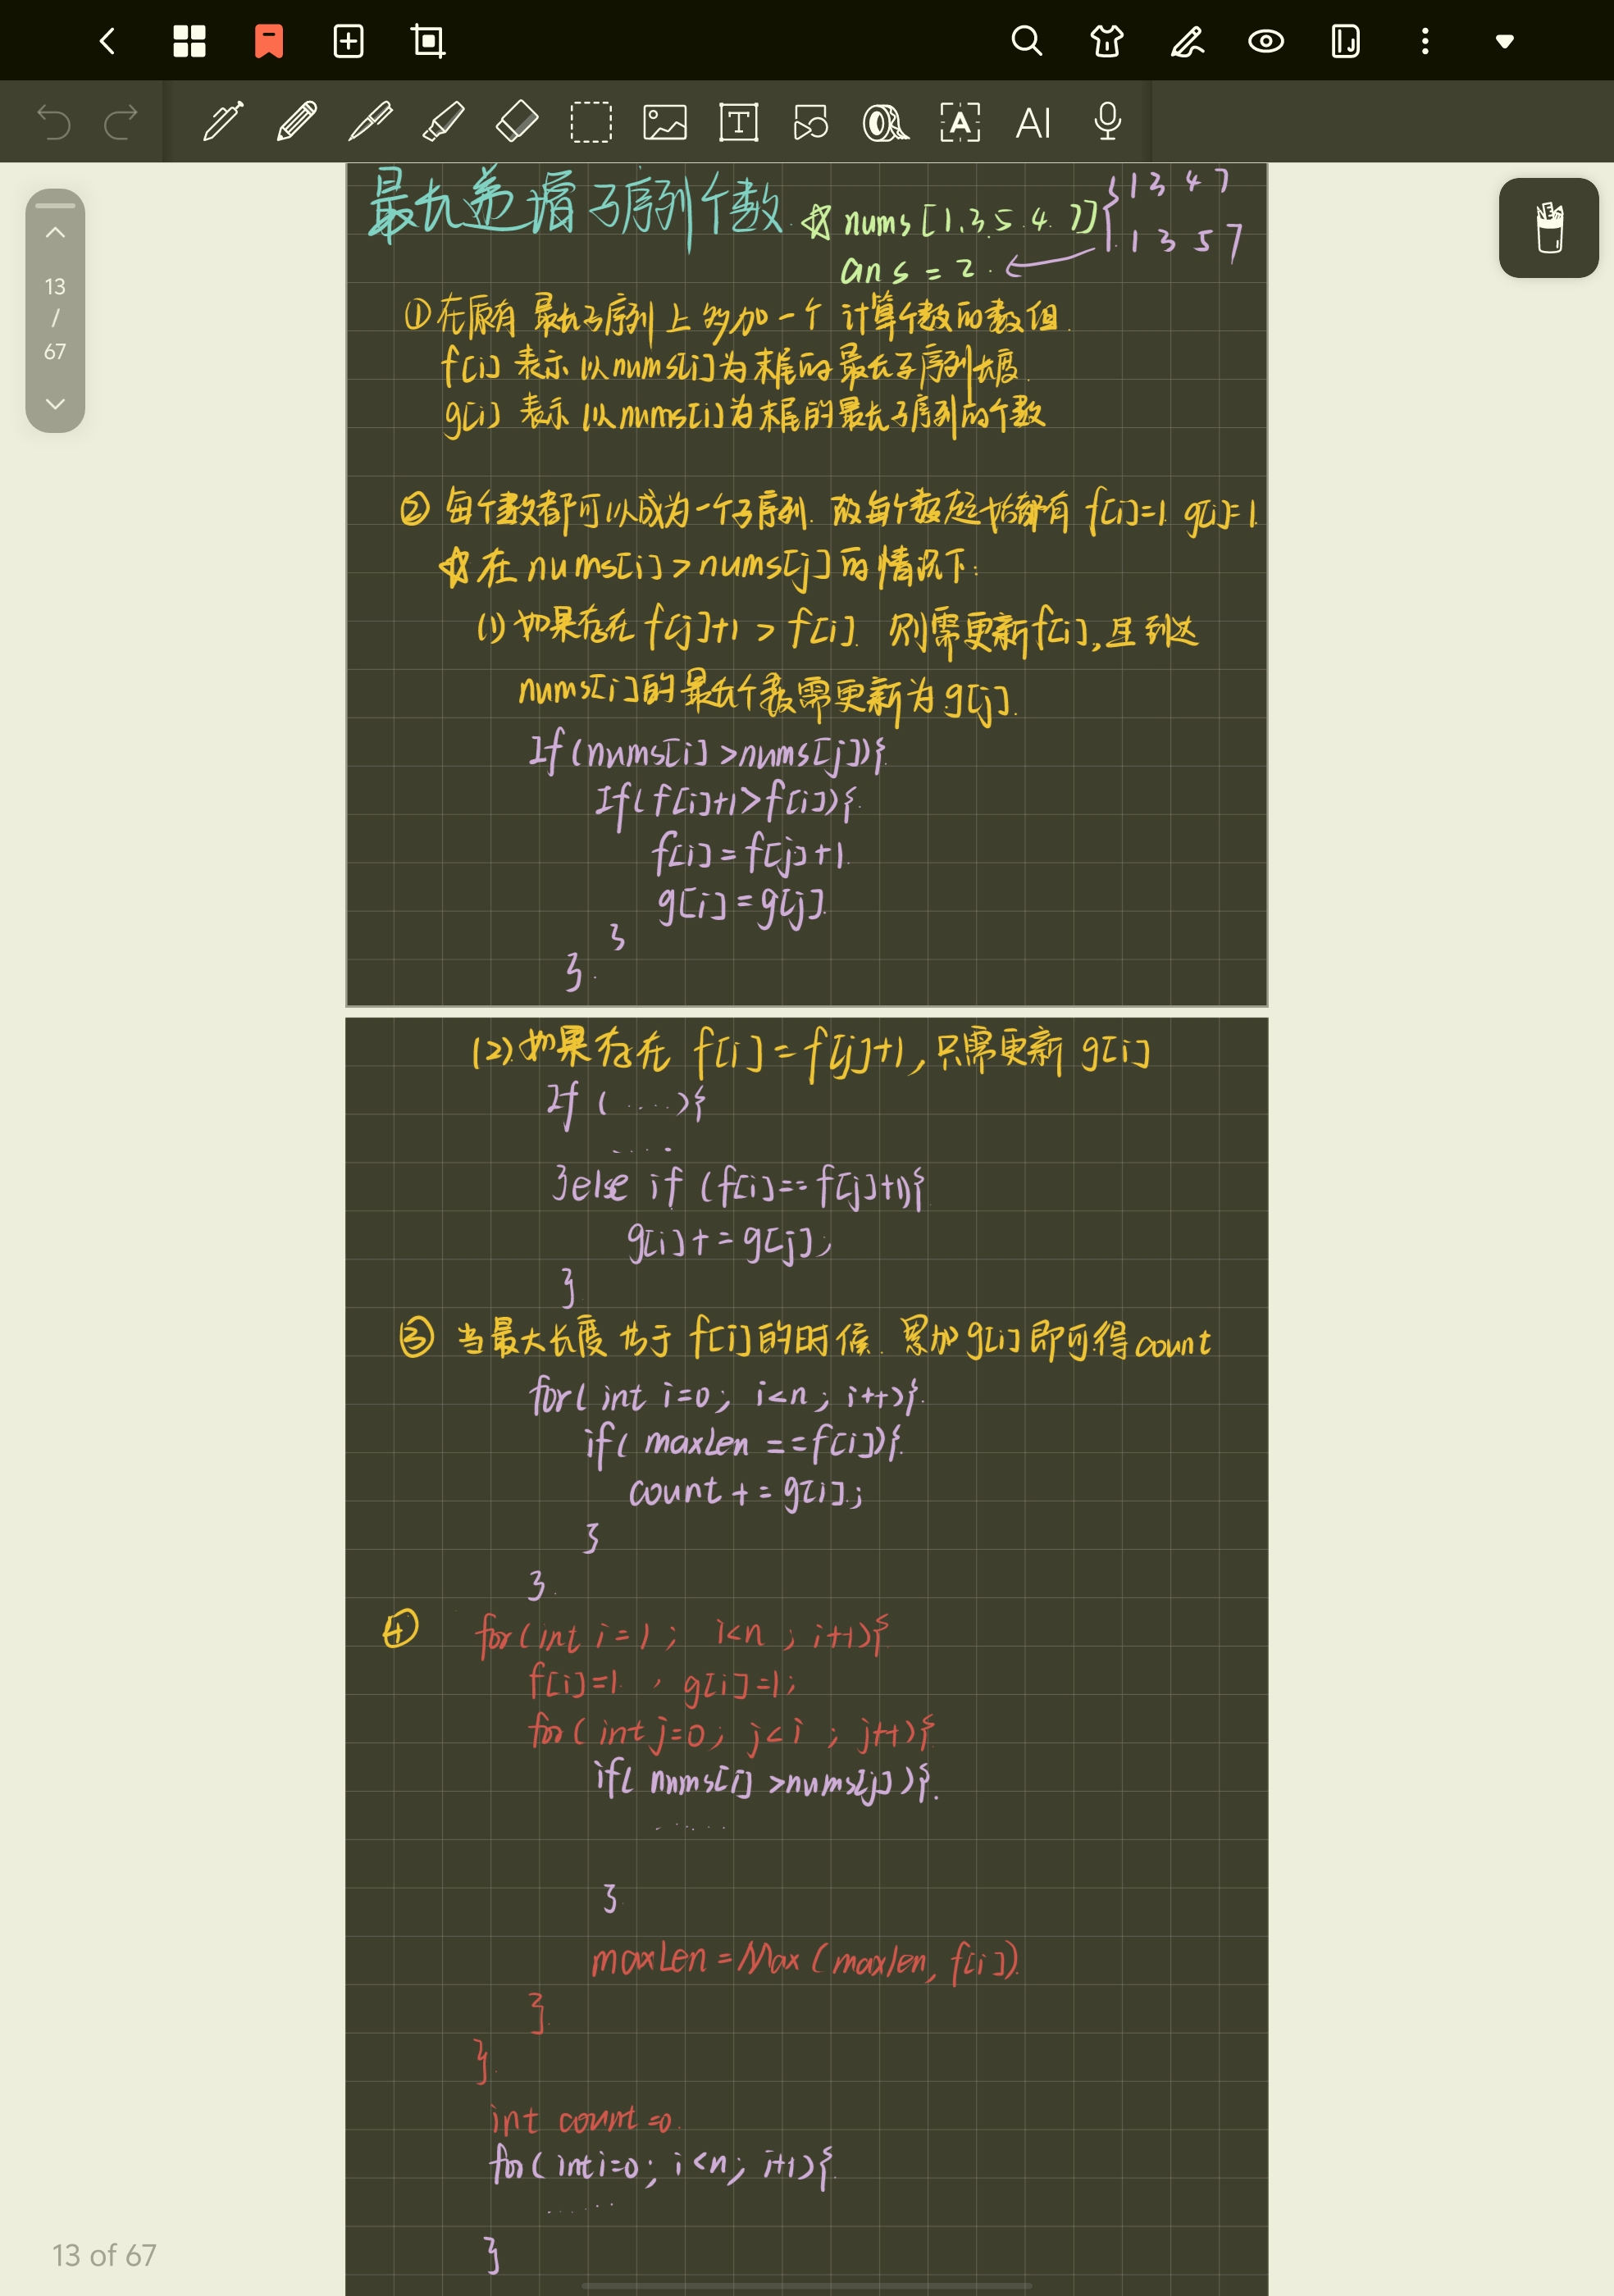 13
/
67
最长递增子序列个数
☆ nums [1.3.5.4.7]
{ 1 3 4 7
1 3 5 7
ans = 2
①在原有 最长子序列上多加一个 计算个数的数组.
f[i] 表示 以nums[i]为末尾的最长子序列长度.
g[i] 表示 以nums[i]为末尾的最长子序列的个数
② 每个数都可以成为一个子序列. 故每个数起始都有 f[i]=1. g[i]=1.
☆在 nums[i] > nums[j] 的情况下:
(1) 如果存在 f[j]+1 > f[i]. 则需更新f[i],且到达
nums[i]的最长个数需更新为 g[j].
If(nums[i] >nums[j]){
If( f[j]+1>f[i]){
f[i] = f[j]+1
g[i] = g[j].
}
}.
(2).如果存在 f[i] = f[j]+1, 只需更新 g[i]
If ( ....){
....
}else if (f[i]== f[j]+1){
g[i] += g[j];
}
③ 当最大长度等于 f[i]的时候. 累加g[i]即可得count
for( int i=0; i<n; i++){
if( maxLen ==f[i]){
count += g[i];
}
}.
④ for(int i=1; i<n; i++){
f[i]=1 , g[i]=1;
for( int j=0; j<i ; j++){
if( nums[i] >nums[j] ){.
.....
}
maxLen = Max (maxlen, f[i]).
}.
}.
int count =0.
for( int i=0; i<n; i++){
.....
}
13 of 67